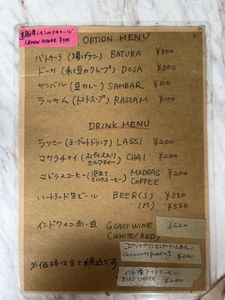 LEMON PICKLE ¥100
OPTION MENU
バトゥーラ (揚げナン) BATURA ¥300
ドーサ (米と豆のクレープ) DOSA ¥300
サンバル (豆カレー) SAMBAR ¥100
ラッサム (トマトスープ) RASSAM ¥100
DRINK MENU
ラッシー (ヨーグルトドリンク) LASSI ¥200
マサラチャイ (スパイス入りミルクティー) CHAI ¥200
マドラスコーヒー (泡立てミルクコーヒー) MADRAS COFFEE ¥200
ハートランド生ビール BEER (S) ¥350
(M) ¥550
インドワイン 赤・白 GLASS WINE (WHITE/RED) ¥620
※価格は全て税込です